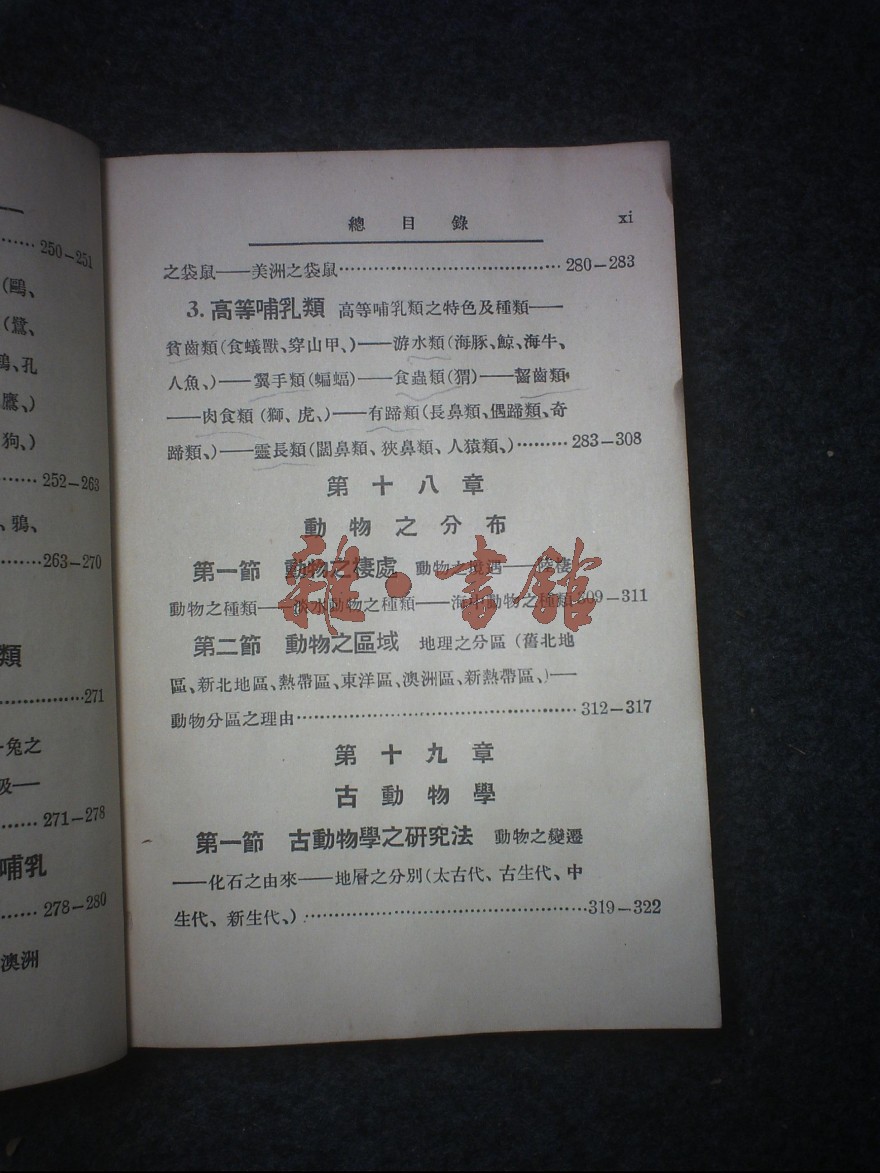 250—251
(鷗、
(鷺、
孔
鷹、)
狗、)
252—263
、鴉、
263—270
類
271
兔之
271—278
哺乳
278—280
澳洲
總目錄 xi
之袋鼠——美洲之袋鼠……280—283
3. 高等哺乳類 高等哺乳類之特色及種類——
貧齒類(食蟻獸、穿山甲、)——游水類(海豚、鯨、海牛、
人魚、)——翼手類(蝙蝠)——食蟲類(猬)——齧齒類
——肉食類(獅、虎、)——有蹄類(長鼻類、偶蹄類、奇
蹄類、)——靈長類(闊鼻類、狹鼻類、人猿類、)……283—308
第十八章
動物之分布
第一節 動物之棲處 動物之 遇——陸棲
動物之種類——淡水動物之種類——海中動物之種類 309—311
第二節 動物之區域 地理之分區(舊北地
區、新北地區、熱帶區、東洋區、澳洲區、新熱帶區、)——
動物分區之理由……312—317
第十九章
古動物學
第一節 古動物學之研究法 動物之變遷
——化石之由來——地層之分別(太古代、古生代、中
生代、新生代、)……319—322
雜·書館